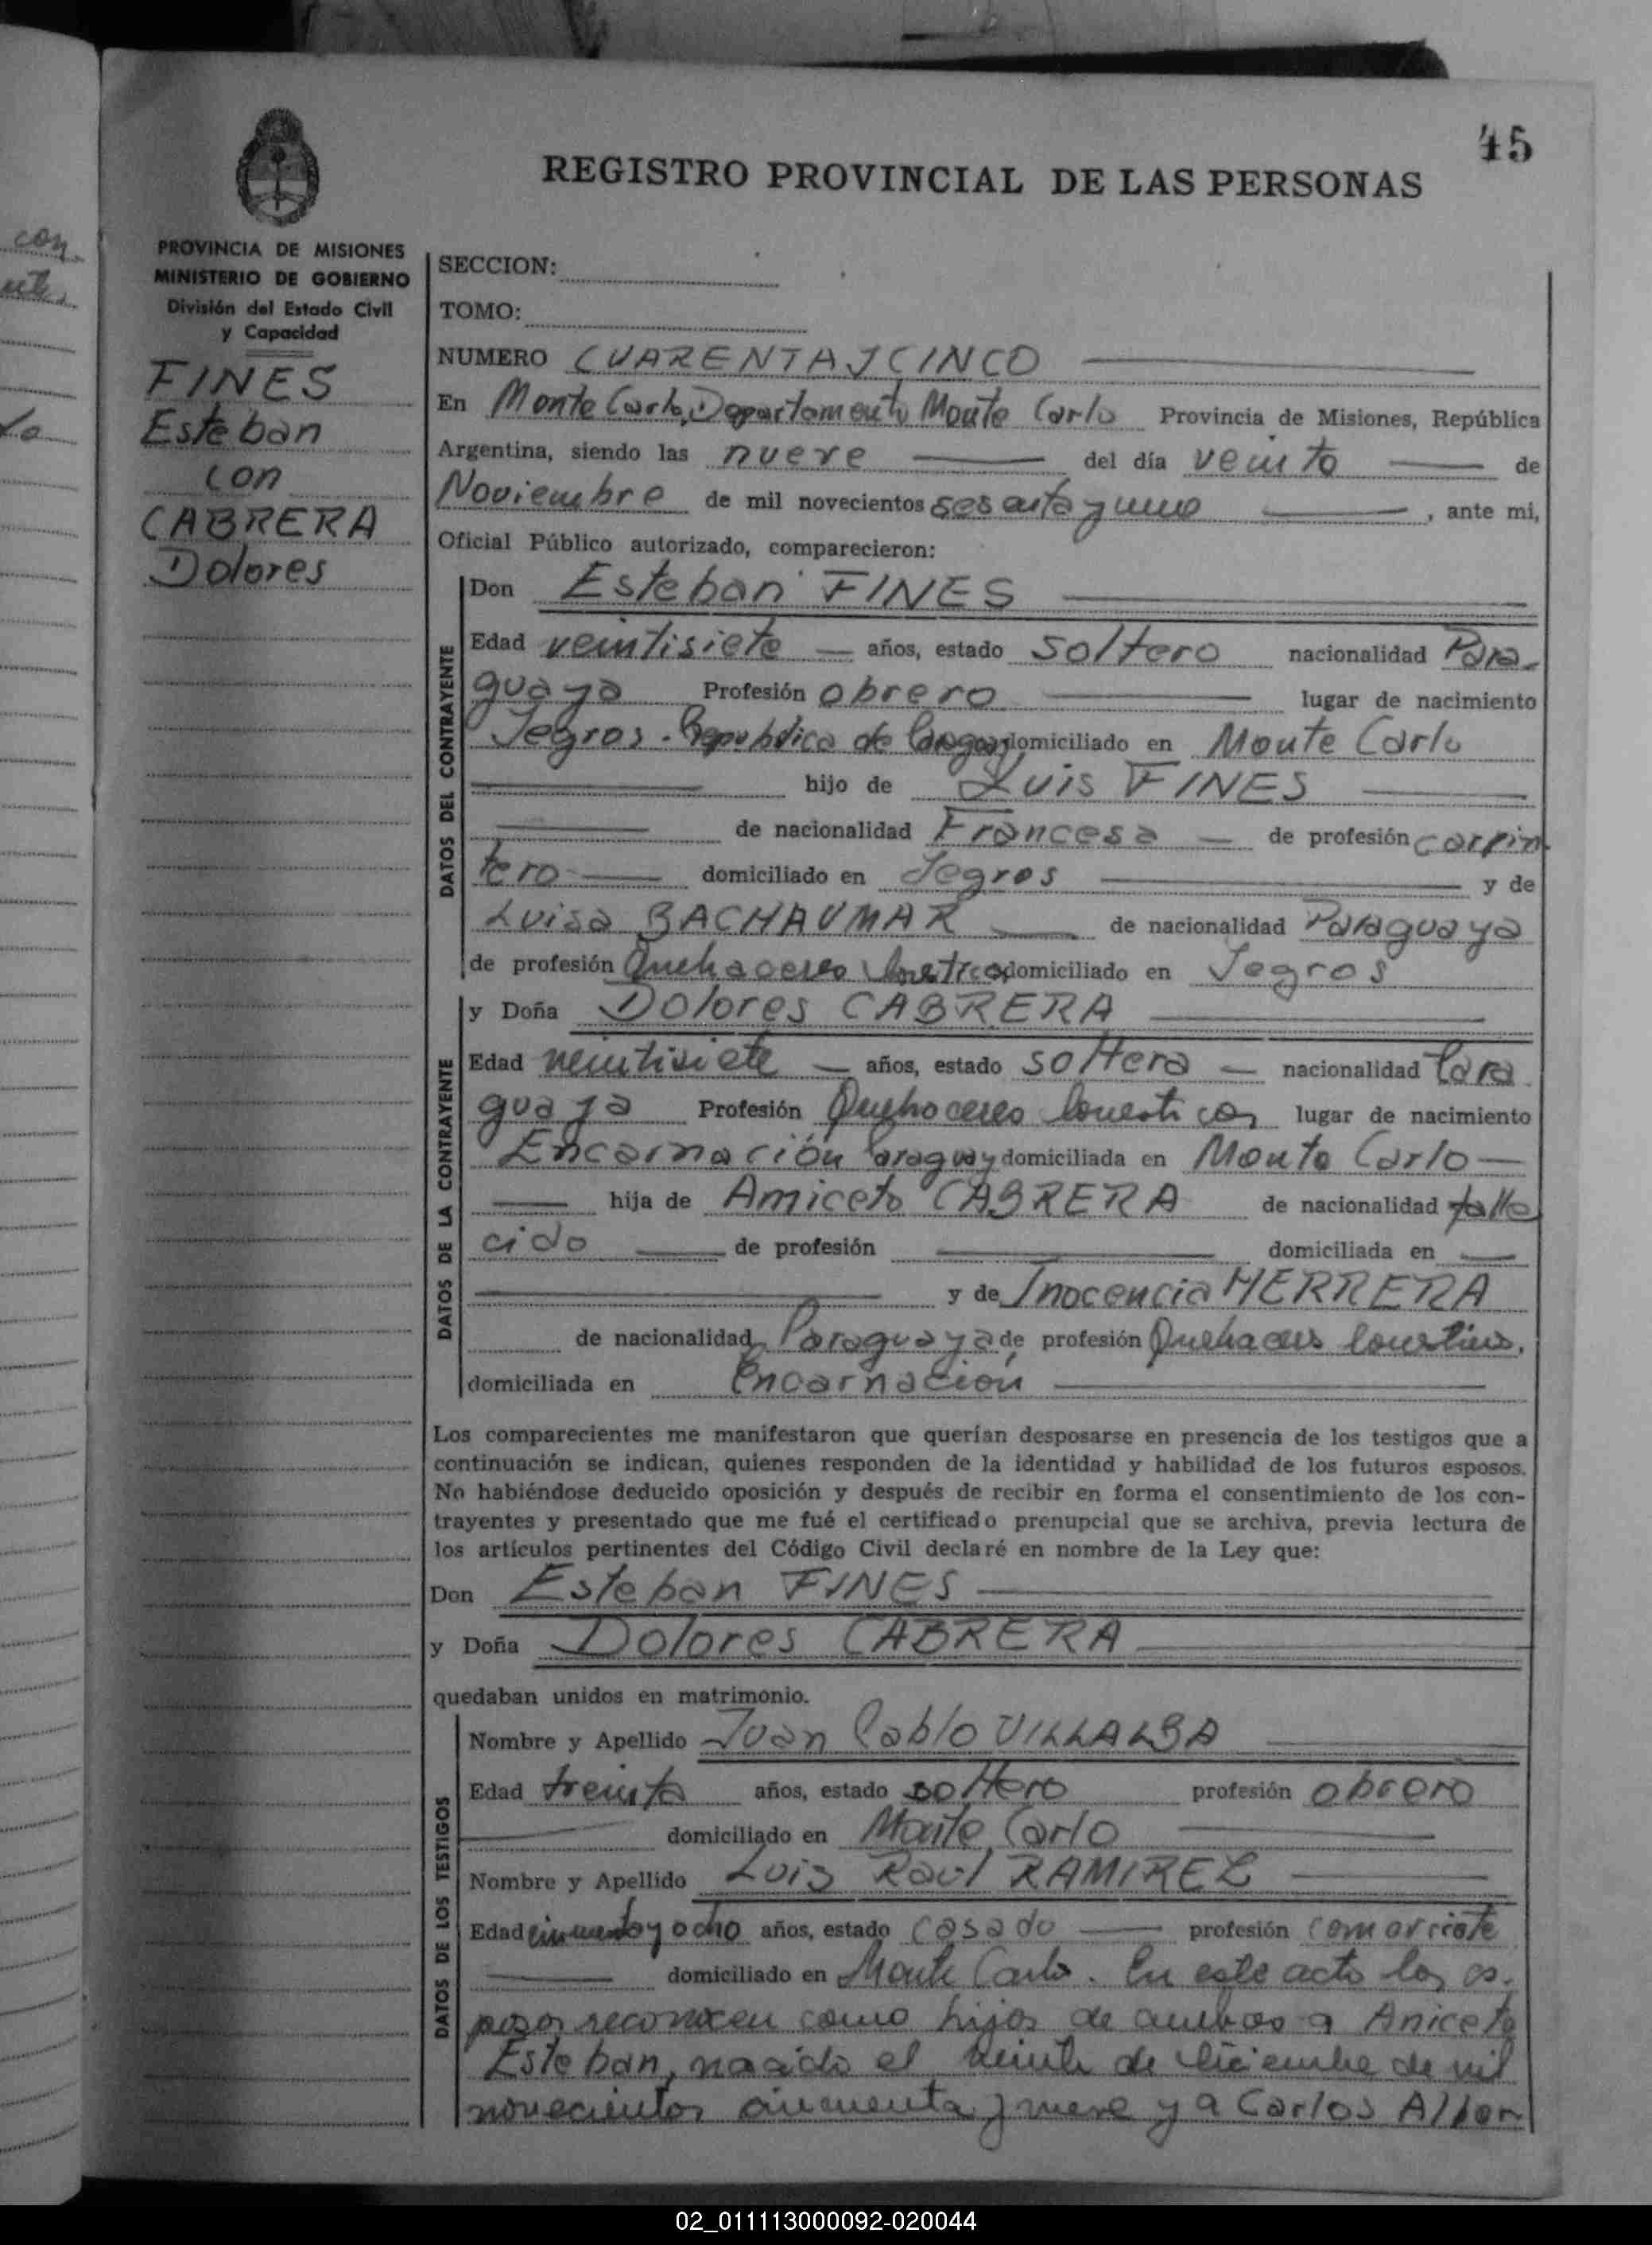 45
REGISTRO PROVINCIAL DE LAS PERSONAS
PROVINCIA DE MISIONES
MINISTERIO DE GOBIERNO
División del Estado Civil
y Capacidad
FINES
Esteban
con
CABRERA
Dolores
SECCION:
TOMO:
NUMERO CUARENTA Y CINCO
En Monte Carlo, Departamento Monte Carlo Provincia de Misiones, República
Argentina, siendo las nueve del día veinte de
Noviembre de mil novecientos sesenta y uno, ante mi,
Oficial Público autorizado, comparecieron:
DATOS DEL CONTRAYENTE
Don Esteban FINES
Edad veintisiete años, estado soltero nacionalidad Para-
guaya Profesión obrero lugar de nacimiento
Yegros - Republica de Paraguay domiciliado en Monte Carlo
hijo de Luis FINES
de nacionalidad Francesa de profesión carpin
tero domiciliado en Yegros y de
Luisa BACHAUMAR de nacionalidad Paraguaya
de profesión Quehaceres domesticos domiciliado en Yegros
DATOS DE LA CONTRAYENTE
y Doña Dolores CABRERA
Edad veintisiete años, estado soltera nacionalidad Para
guaya Profesión Quehaceres domesticos lugar de nacimiento
Encarnación Paraguay domiciliada en Monte Carlo
hija de Aniceto CABRERA de nacionalidad falle
cido de profesión domiciliada en
y de Inocencia HERRERA
de nacionalidad Paraguaya de profesión Quehaceres domesticos,
domiciliada en Encarnación
Los comparecientes me manifestaron que querían desposarse en presencia de los testigos que a
continuación se indican, quienes responden de la identidad y habilidad de los futuros esposos.
No habiéndose deducido oposición y después de recibir en forma el consentimiento de los con-
trayentes y presentado que me fué el certificado prenupcial que se archiva, previa lectura de
los artículos pertinentes del Código Civil declaré en nombre de la Ley que:
Don Esteban FINES
y Doña Dolores CABRERA
quedaban unidos en matrimonio.
DATOS DE LOS TESTIGOS
Nombre y Apellido Juan Pablo VILLALBA
Edad treinta años, estado soltero profesión obrero
domiciliado en Monte Carlo
Nombre y Apellido Luis Raúl RAMIREZ
Edad cincuenta y ocho años, estado casado profesión comerciante
domiciliado en Monte Carlo. En este acto los es-
posos reconocen como hijos de ambos a Aniceto
Esteban, nacido el veinte de diciembre de mil
novecientos cincuenta y nueve y a Carlos Alber
con
02_011113000092-020044